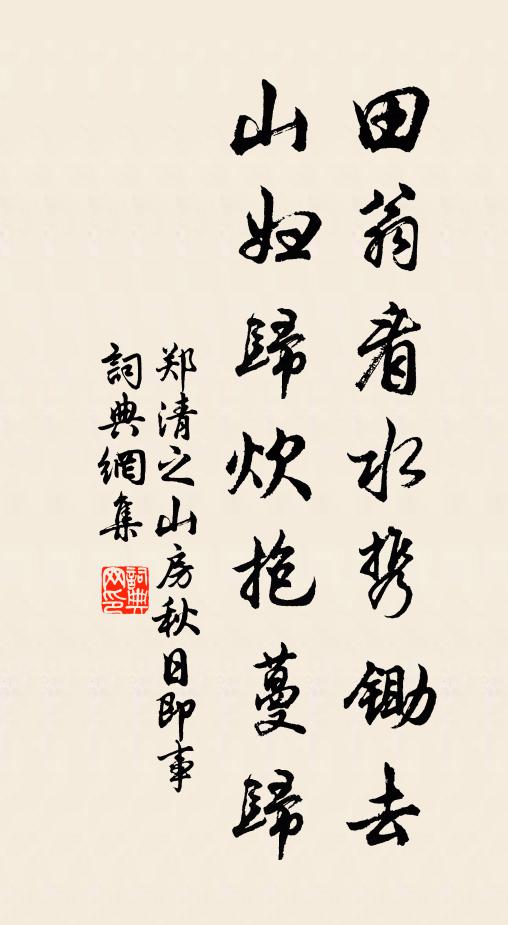 田翁看水携锄去
山妇歸炊抱蔓歸
郑清之山房秋日即事
詞典網集
詞典网印